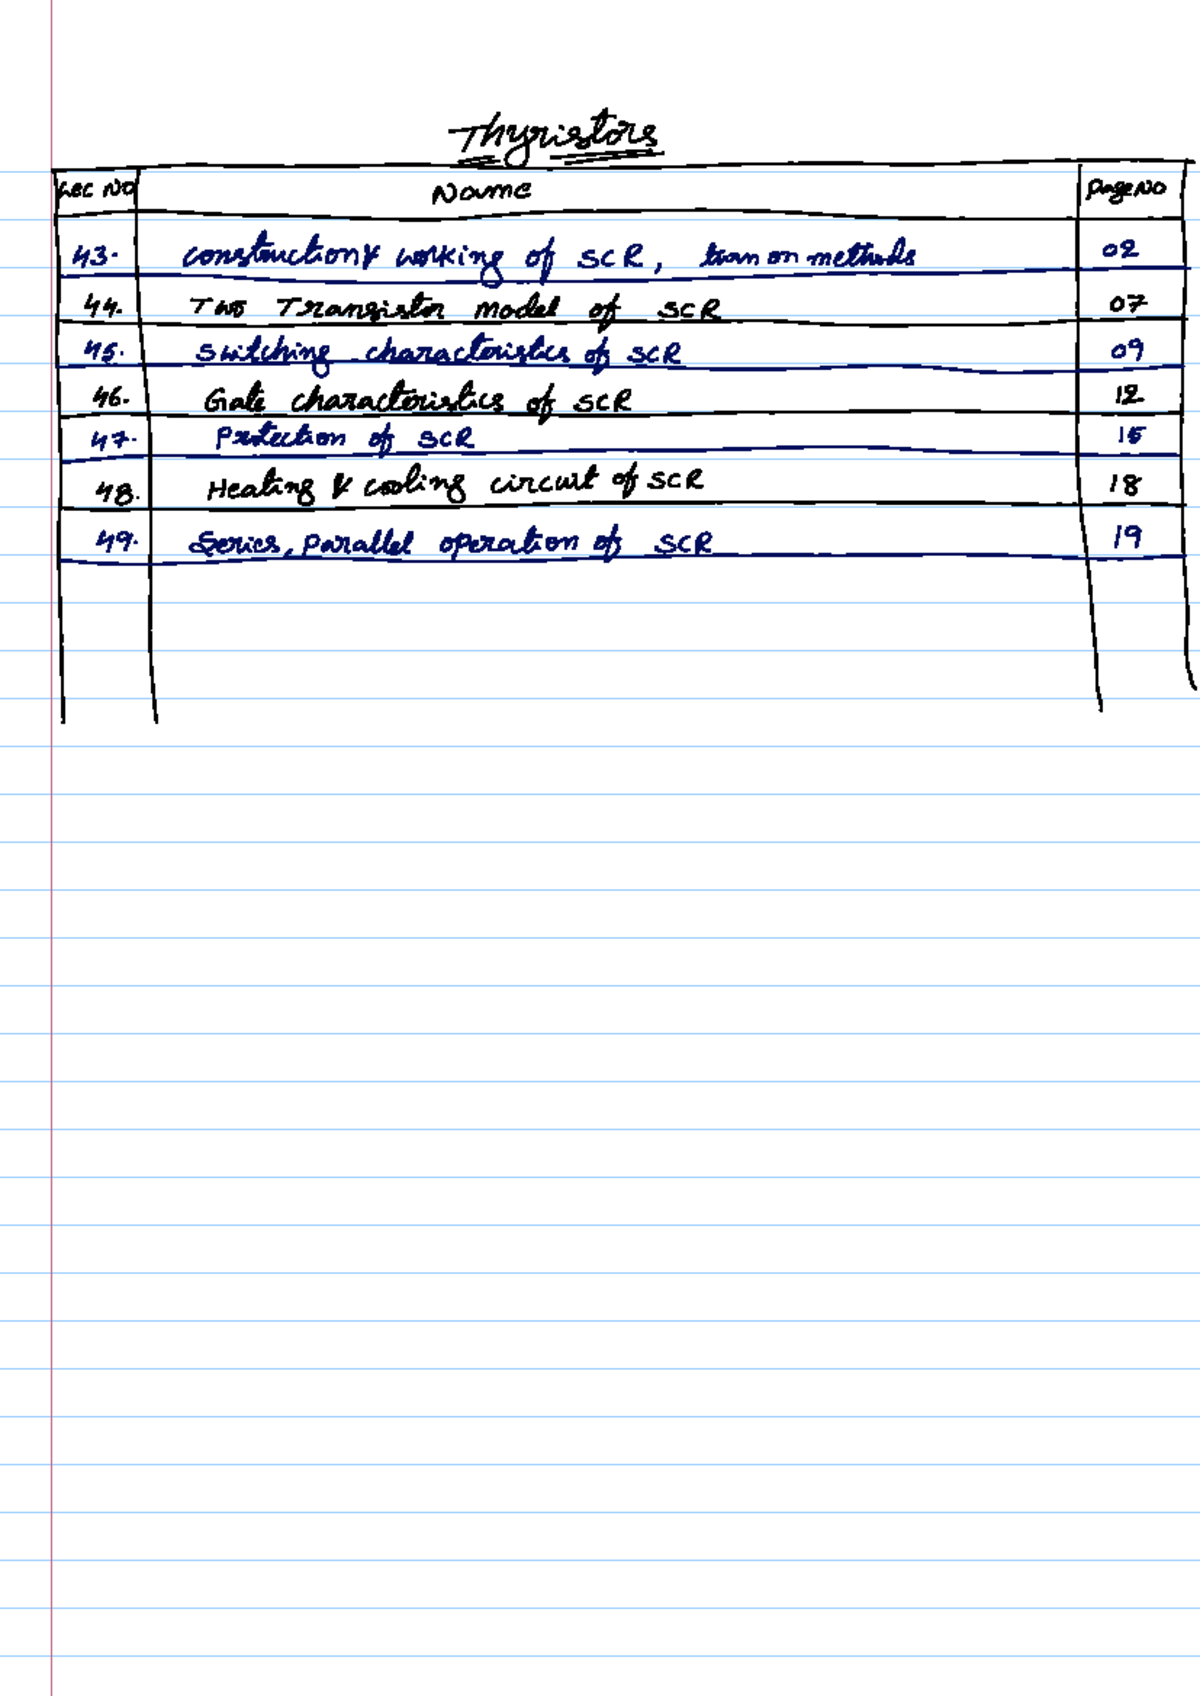 Thyristors
Lec No Name Page No
43. construction & working of SCR, turn on methods 02
44. Two Transistor model of SCR 07
45. Switching characteristics of SCR 09
46. Gate characteristics of SCR 12
47. Protection of SCR 15
48. Heating & cooling circuit of SCR 18
49. Series, parallel operation of SCR 19